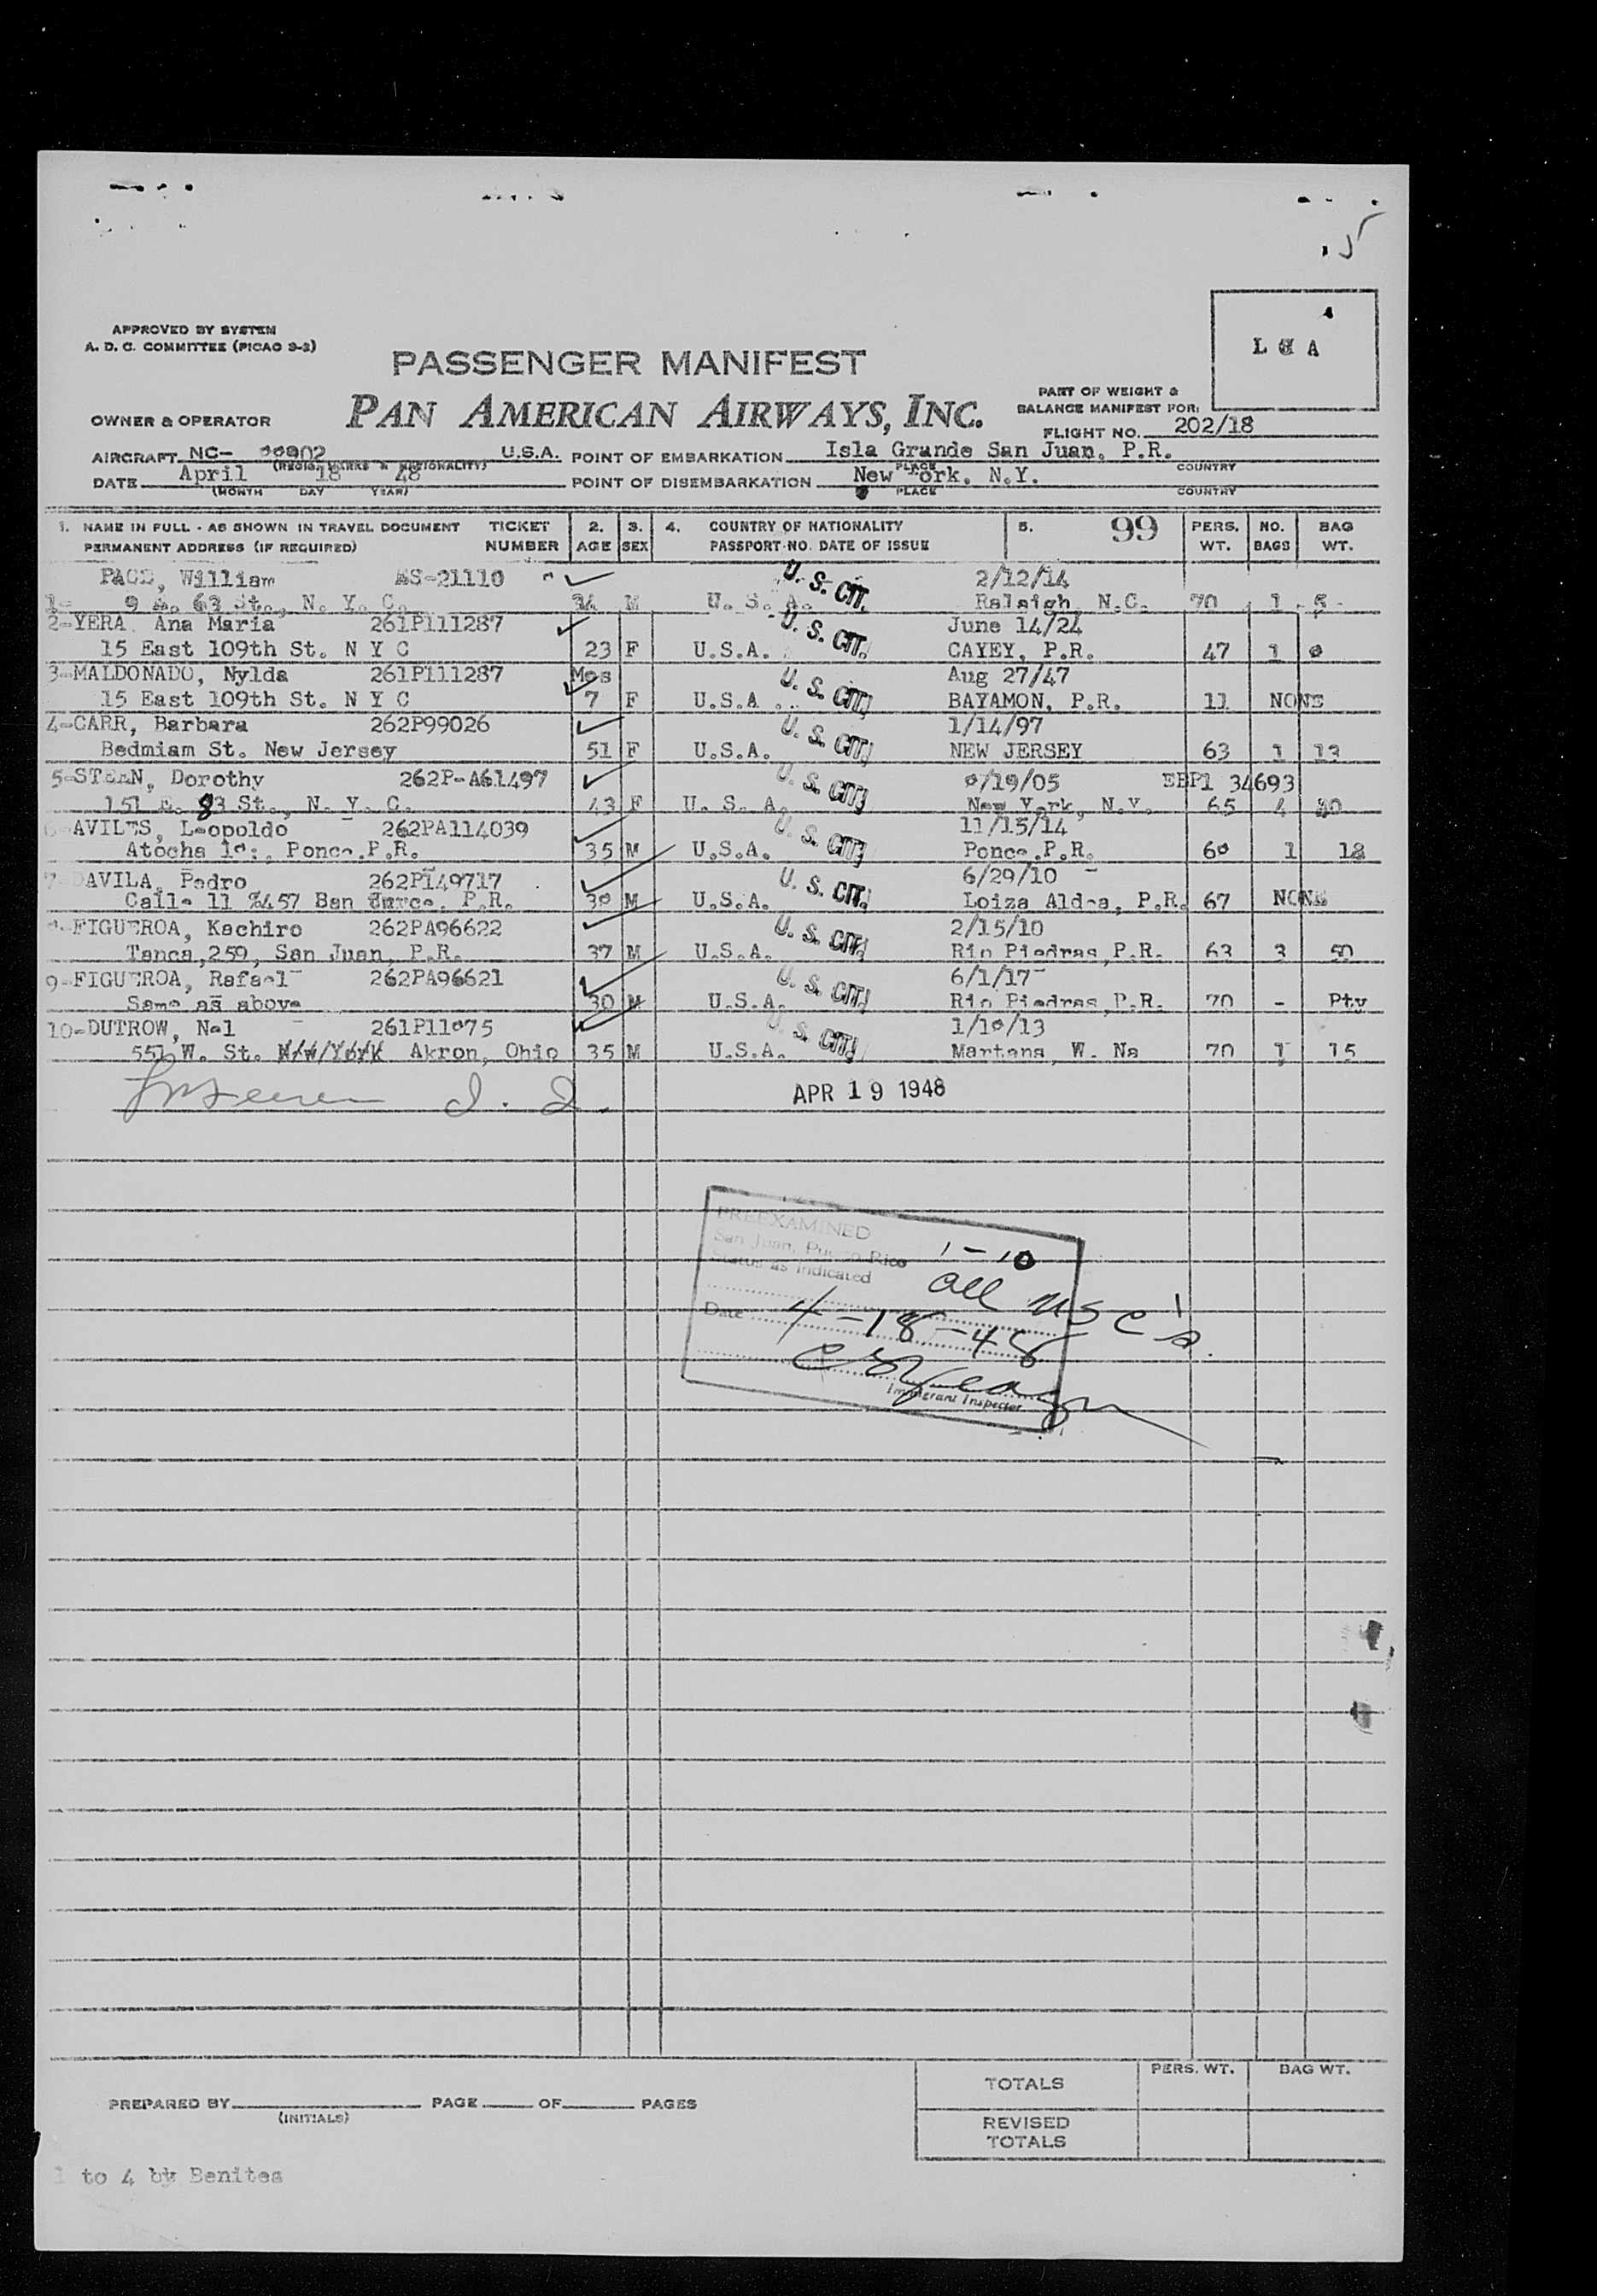 APPROVED BY SYSTEM
A. D. C. COMMITTEE (PICAO 9-2)
L G A
PASSENGER MANIFEST
PART OF WEIGHT &
BALANCE MANIFEST FOR:
OWNER & OPERATOR
PAN AMERICAN AIRWAYS, INC.
FLIGHT NO. 202/18
AIRCRAFT NC- U.S.A. POINT OF EMBARKATION Isla Grande San Juan, P.R.
(REGIS. MARKS & NATIONALITY) PLACE COUNTRY
DATE April 18 48 POINT OF DISEMBARKATION New York. N.Y.
(MONTH DAY YEAR) PLACE COUNTRY
1. NAME IN FULL - AS SHOWN IN TRAVEL DOCUMENT TICKET 2. 3. 4. COUNTRY OF NATIONALITY 5. 99 PERS. NO. BAG
PERMANENT ADDRESS (IF REQUIRED) NUMBER AGE SEX PASSPORT NO. DATE OF ISSUE WT. BAGS WT.
PAGE, William 21110 U. S. CIT. 2/12/14
1- 9 63 St., N. Y. C. 34 M U. S. A. Raleigh, N.C. 70 1
2-YERA Ana Maria 261P111287 U. S. CIT. June 14/24
15 East 109th St. N Y C 23 F U.S.A. CAYEY, P.R. 47 1
3-MALDONADO, Nylda 261P111287 Mos U. S. CIT. Aug 27/47
15 East 109th St. N Y C 7 F U.S.A. BAYAMON, P.R. 11 NONE
4-CARR, Barbara 262P99026 U. S. CIT. 1/14/97
Bedmiam St. New Jersey 51 F U.S.A. NEW JERSEY 63 1 13
5-STEAN, Dorothy 262P-A61497 U. S. CIT. /19/05 EBP1 34693
151 E. 83 St., N. Y. C. 43 F U. S. A. New York, N.Y. 65 4 40
6-AVILES, Leopoldo 262PA114039 U. S. CIT. 11/15/14
Atocha Ponce.P.R. 35 M U.S.A. Ponce.P.R. 60 1 18
7-DAVILA, Pedro 262P149717 U. S. CIT. 6/29/10
Calle 11 %457 San Turce. P.R. 38 M U.S.A. Loiza Aldea, P.R. 67 NONE
FIGUEROA, Kachiro 262PA96622 U. S. CIT. 2/15/10
Tanca,259, San Juan, P.R. 37 M U.S.A. Rio Piedras,P.R. 63 3 50
9-FIGUEROA, Rafael 262PA96621 U. S. CIT. 6/1/17
Same as above 30 M U.S.A. Rio Piedras,P.R. 70 - Pty
10-DUTROW, Nel 261P11075 U. S. CIT. 1/10/13
551 W. St. New/York Akron, Ohio 35 M U.S.A. Martens, W. Na 70 1 15
APR 19 1948
PREEXAMINED
San Juan, Puerto Rico 1-10
Status as indicated all USC's
Date 4-18-48
Immigrant Inspector
TOTALS PERS. WT. BAG WT.
PREPARED BY PAGE OF PAGES
(INITIALS)
REVISED
TOTALS
1 to 4 by Benites